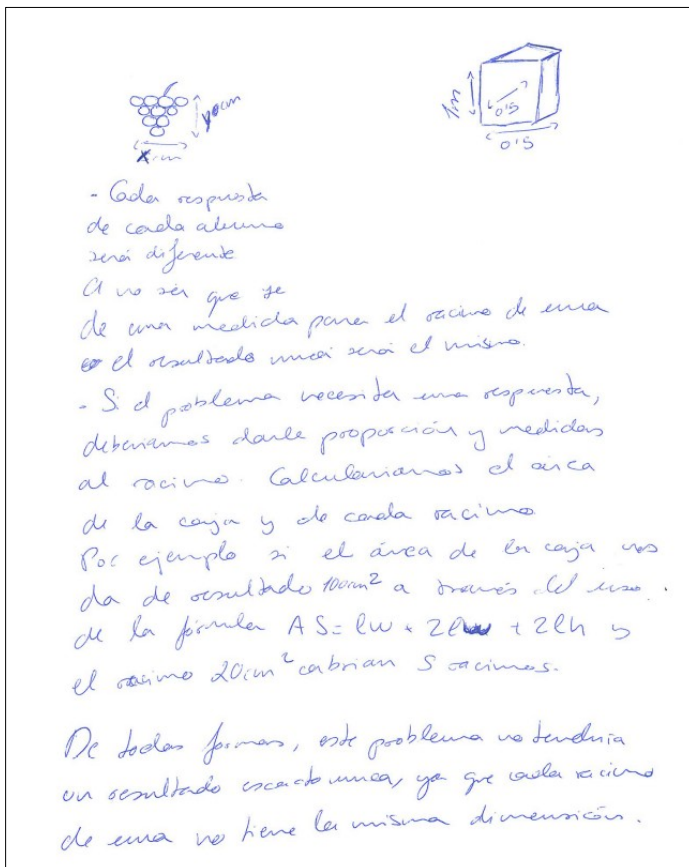 y cm
x cm
1m
0'5
0'5
- Cada respuesta
de cada alumno
será diferente
A no ser que se
de una medida para el racimo de uva
el resultado nunca será el mismo.
- Si el problema necesita una respuesta,
deberiamos darle proporción y medidas
al racimo. Calculariamos el área
de la caja y de cada racimo
Por ejemplo si el área de la caja nos
da de resultado 100cm² a través del uso
de la fórmula AS= lw + 2lw + 2lh y
el racimo 20cm² cabrian 5 racimos.
De todas formas, este problema no tendria
un resultado escacto nunca, ya que cada racimo
de uva no tiene la misma dimensión.